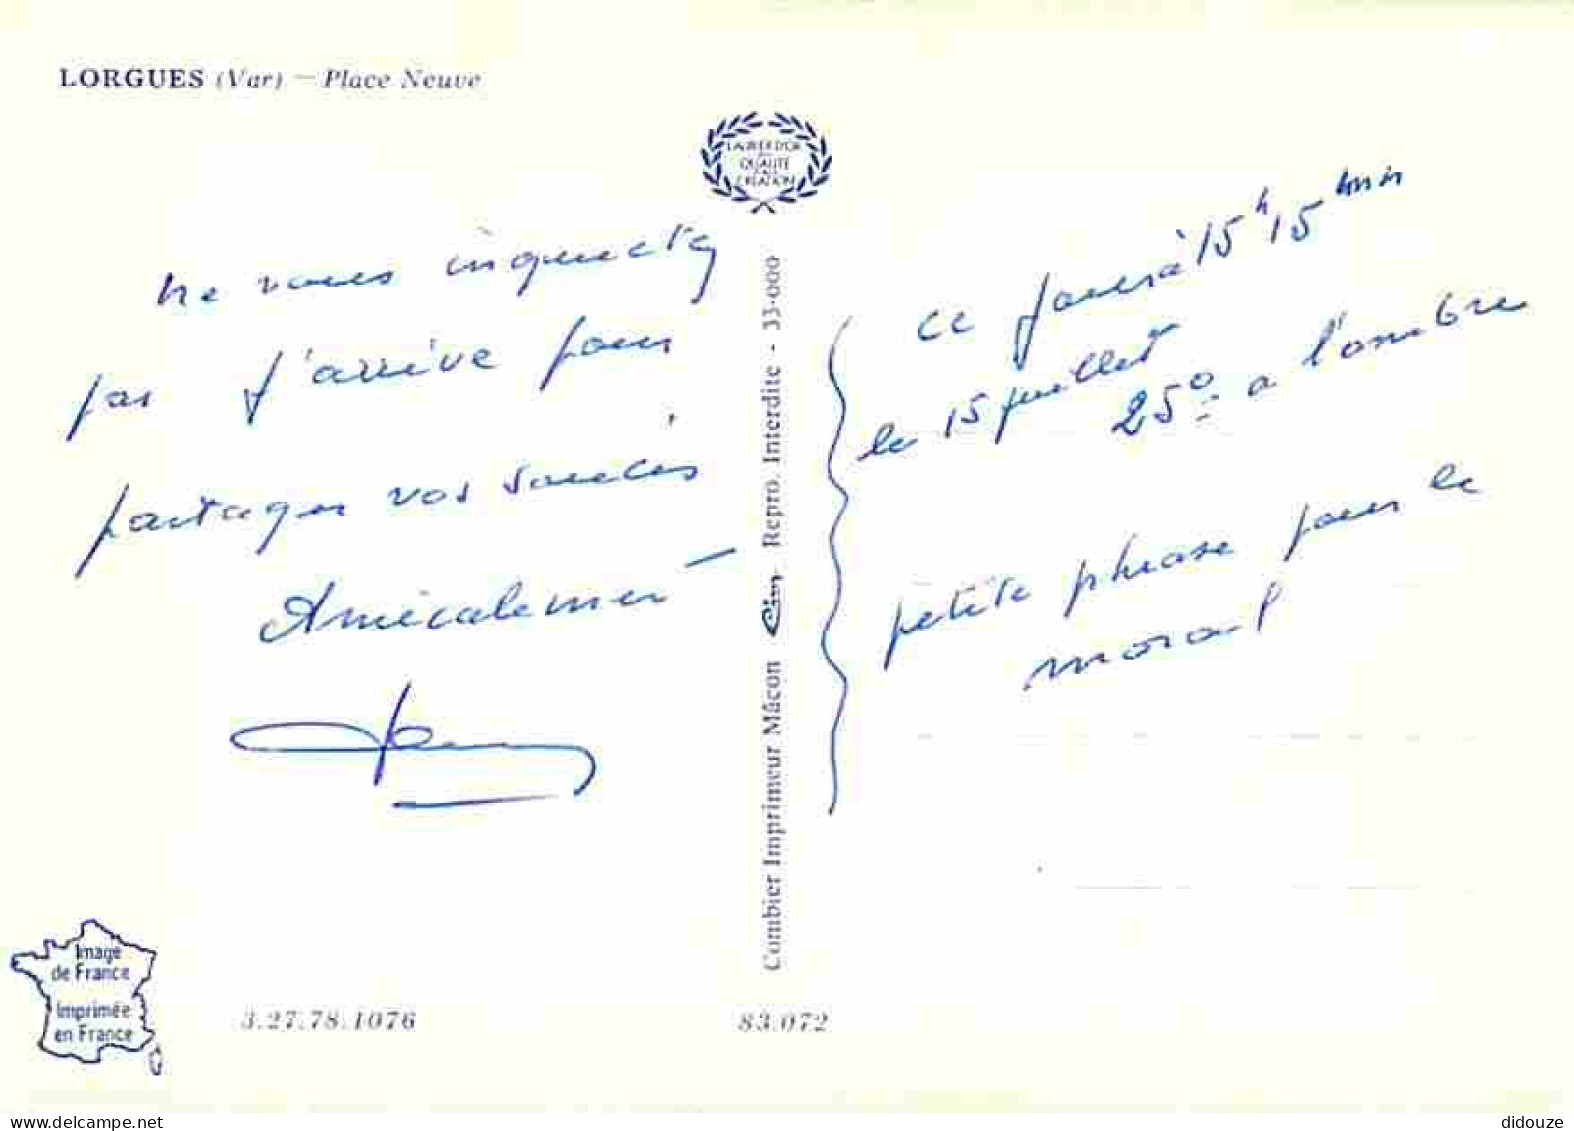 LORGUES (Var) — Place Neuve
LAURIER D'OR
QUALITÉ
CRÉATION
ne vous inquietez
pas j'arrive pour
partager vos soucis
Amicalement
Combier Imprimeur Mâcon Cim Repro. Interdite - 33-000
ce jour à 15h15min
le 15 juillet
25° a l'ombre
petite phrase pour le
moral
Image
de France
Imprimée
en France
3.27.78.1076
83.072
didouze